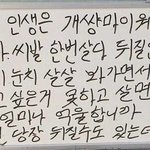 인생은 개썅마이웨
씨발 한번살다 뒤질인
눈치 살살 봐가면서
고싶은거 못하고 살면
얼마나 억울합니까
당장 뒤질수도 있는데